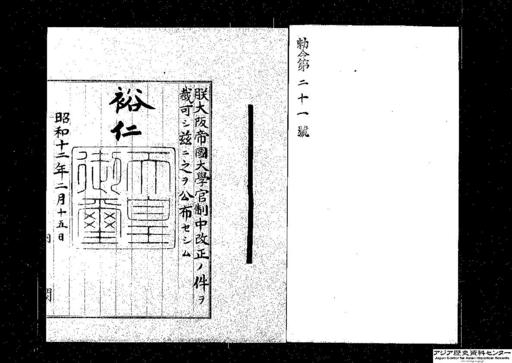 勅令第二十一號
朕大阪帝國大學官制中改正ノ件ヲ
裁可シ玆ニ之ヲ公布セシム
裕仁
天皇御璽
昭和十二年二月十五日
アジア歴史資料センター
Japan Center for Asian Historical Records